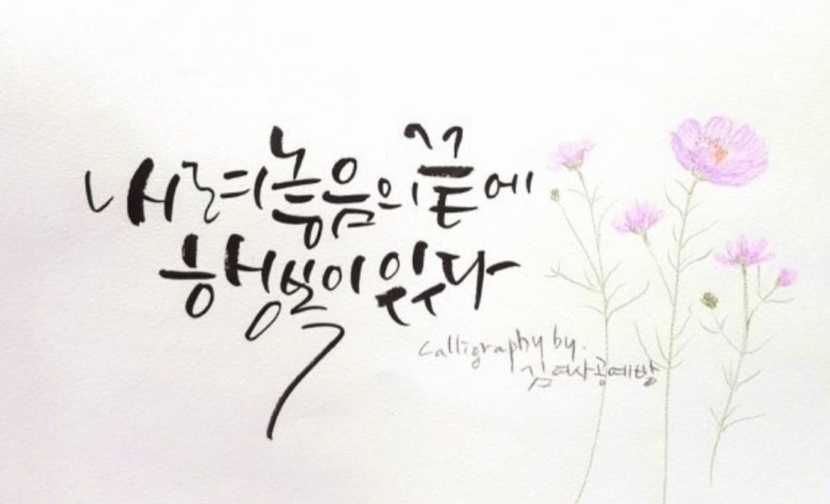 내려놓음의 끝에
행복이 있다
Calligraphy by.
김여사공예방